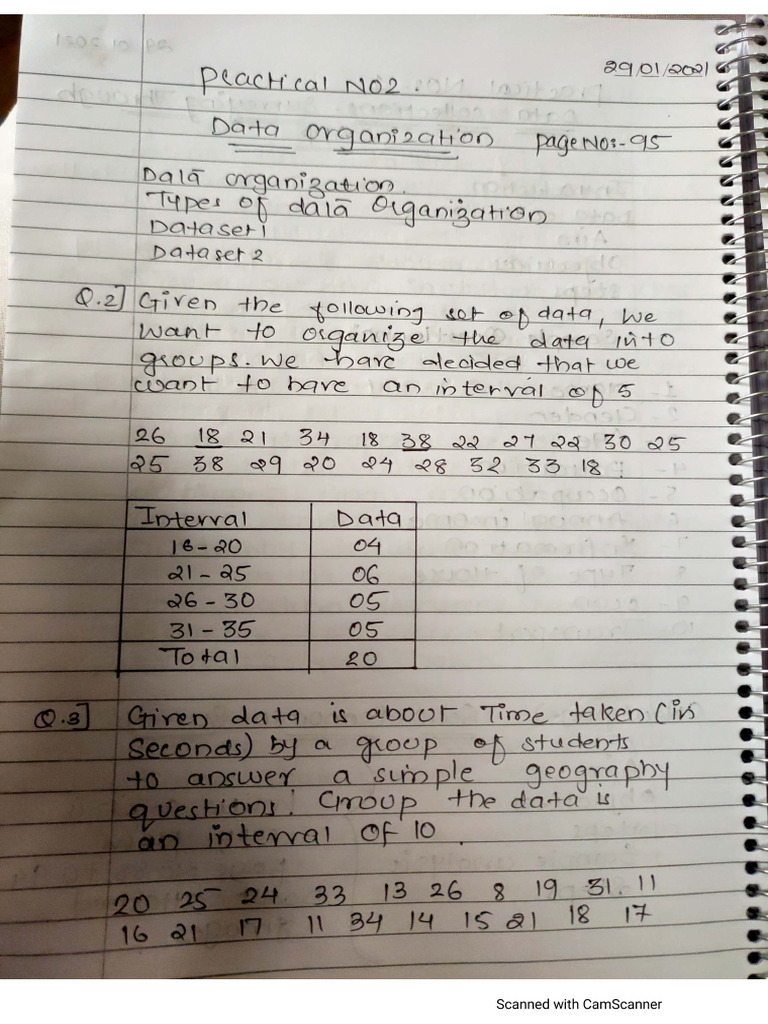 29/01/2021
Practical No 2.
Data organization Page No:-95
Data organization.
Types of data Organization
Dataset 1
Dataset 2
Q.2] Given the following set of data, we
want to organize the data into
groups. We have decided that we
want to have an interval of 5
26 18 21 34 18 38 22 27 22 30 25
25 38 29 20 24 28 32 33 18.
Interval Data
16-20 04
21-25 06
26-30 05
31-35 05
Total 20
Q.3] Given data is about Time taken (in
Seconds) by a group of students
to answer a simple geography
questions: Group the data is
an interval of 10.
20 25 24 33 13 26 8 19 31. 11
16 21 17 11 34 14 15 21 18 17
Scanned with CamScanner